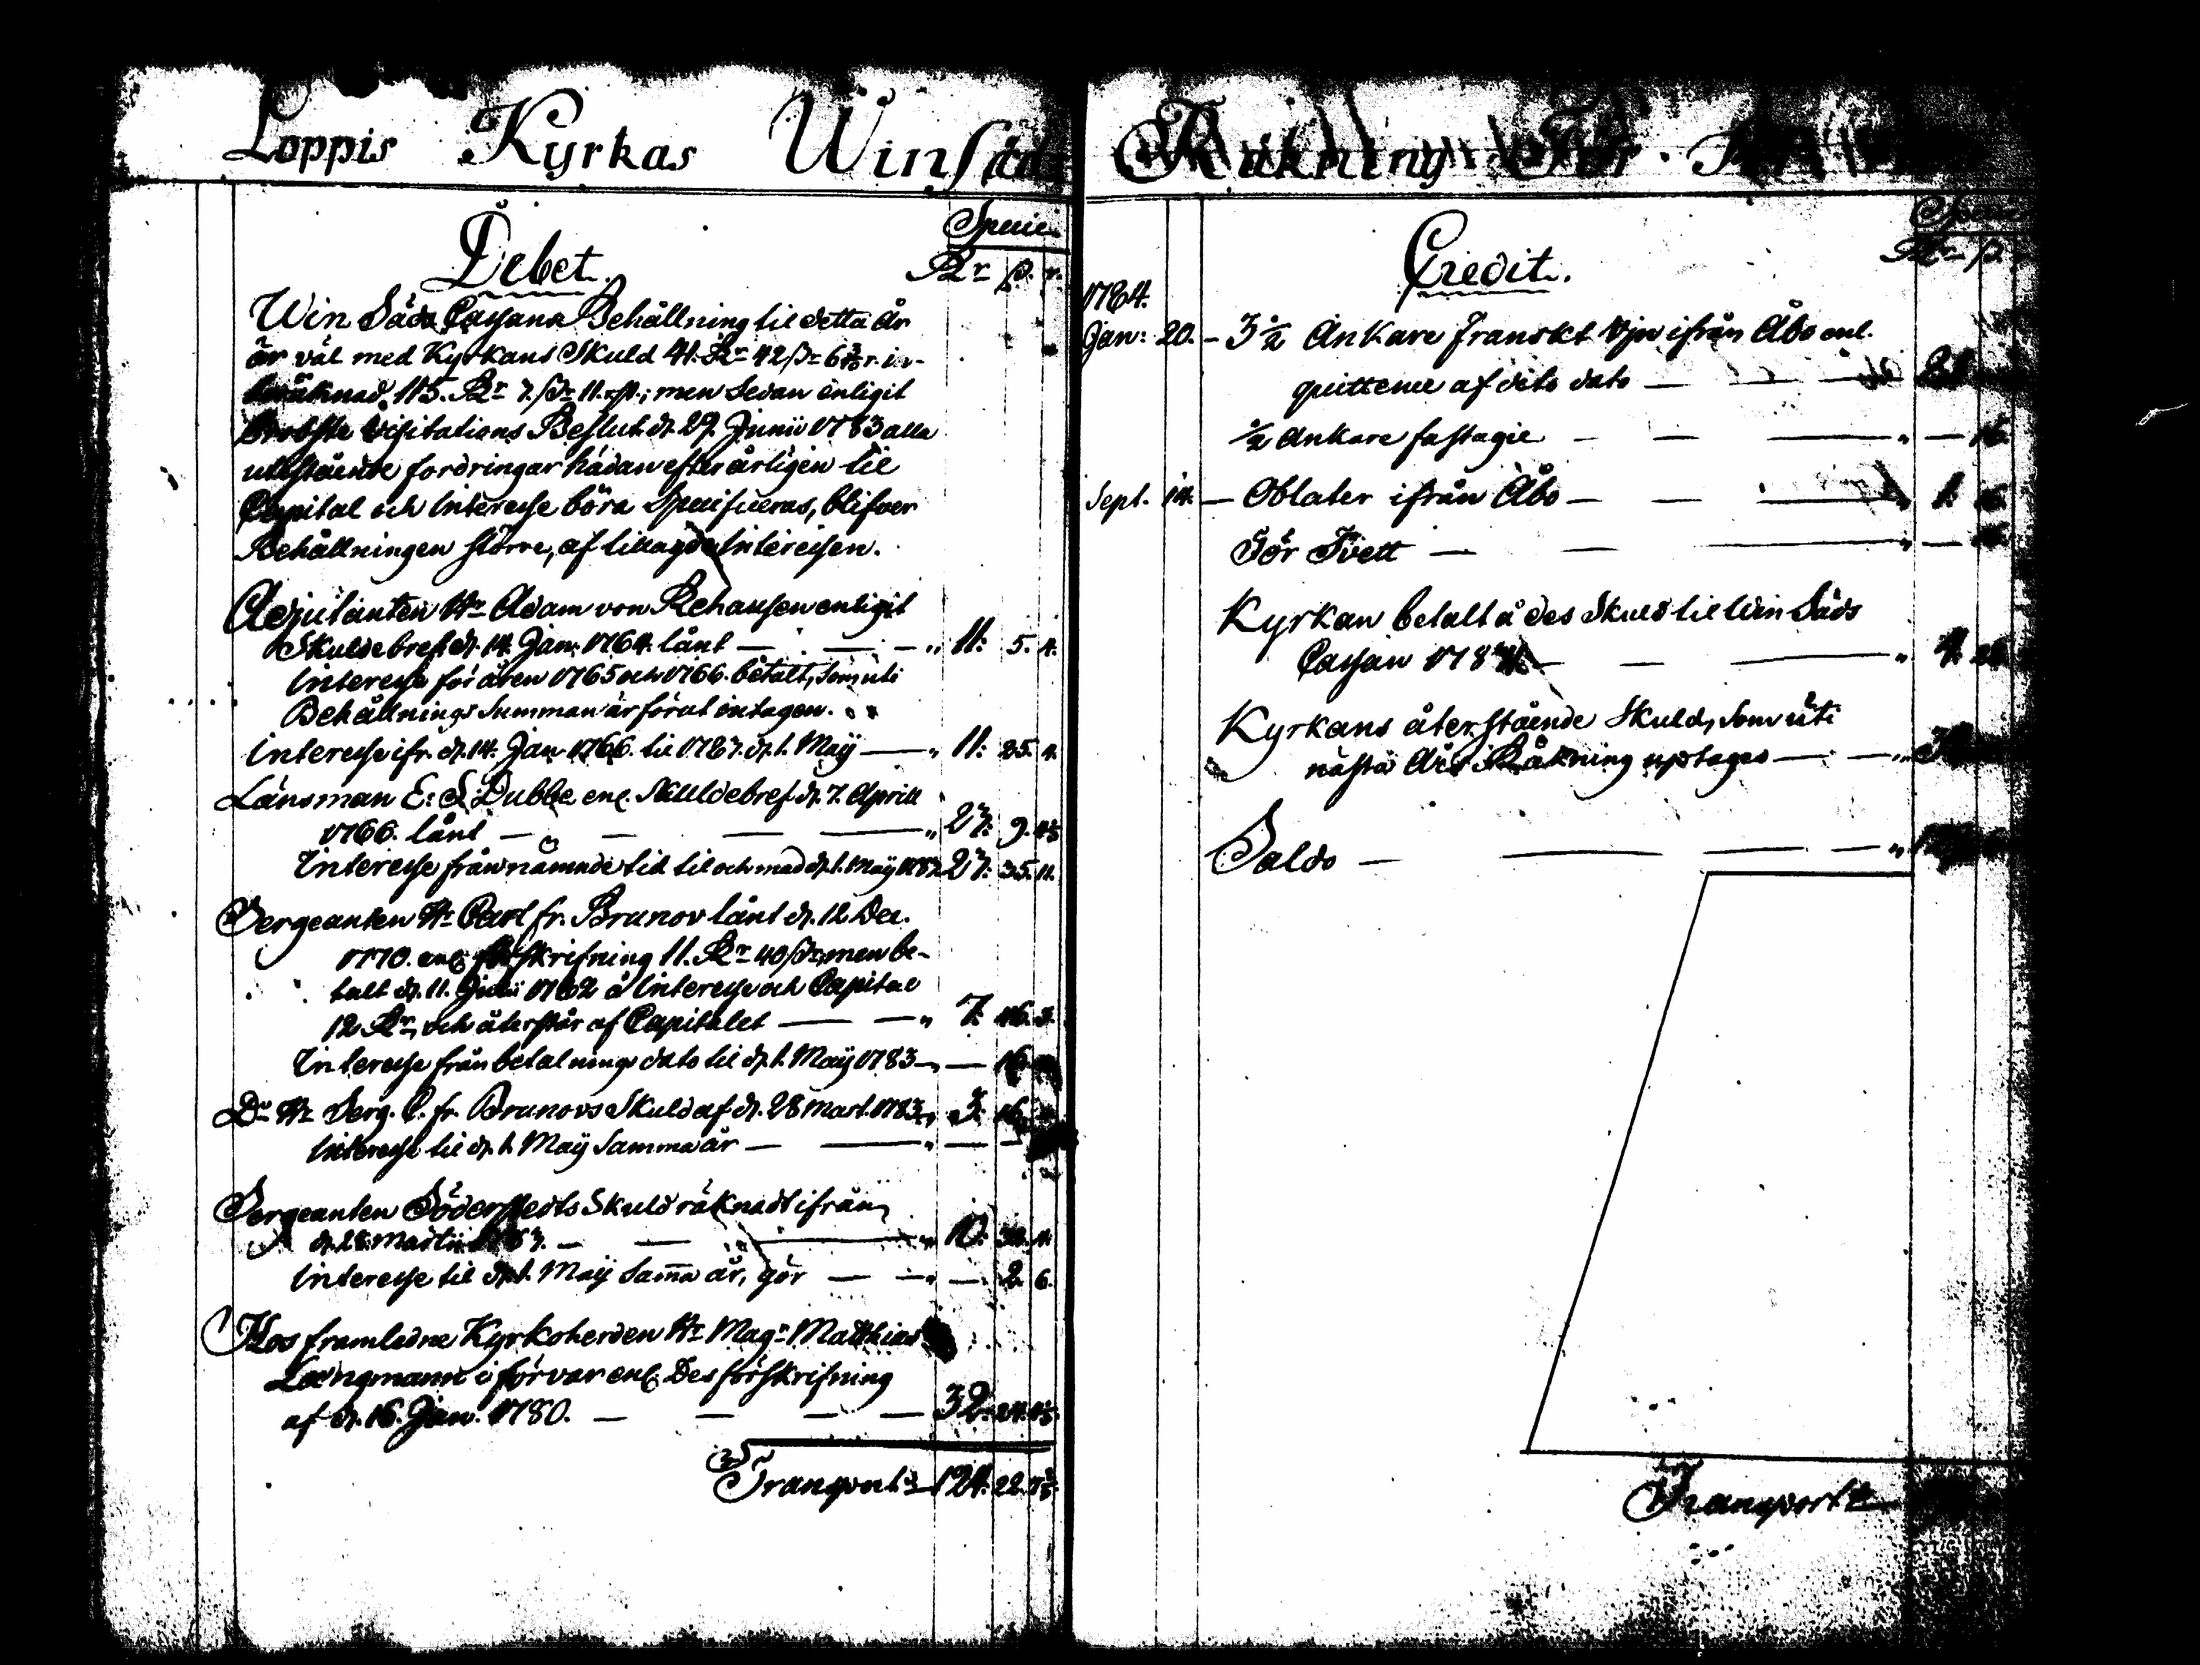 Loppis Kyrkas Winsäds Räkning För
Debet.
Specie
Rr ß. r.
Win Säds Cassans Behållning til detta år
är väl med Kyrkans Skuld 41. Rr 42 ßr 6 r. in-
beräknad, 115. Rr 7. ßr 11. r.; men sedan enligit
Probste Visitations Beslut d. 29. Junii 1783 alla
utestående fordringar hädan efter årligen til
Capital och Interesse böra Specificeras, blifver
Behållningen större, af tillagde Interessen.
Adjutanten Hr Adam von Rehausen enligit
Skuldebref d. 14. Jan. 1764. lånt — 11. 5. 4.
Interesse för åren 1765 och 1766. betalt, som uti
Behållnings Summan är förut intagen.
Interesse ifr. d. 14. Jan 1766. til 1783. d. 1. Maij — 11. 25. 4.
Länsman E: S. Dubbe enl. Skuldebref d. 7. Aprill
1766. lånt — 27. 9.
Interesse från nämnde tid til och med d. 1. Maij 1783. 27. 35. 11.
Sergeanten Hr Carl fr. Brunov lånt d. 12 Dec.
1770. enl. förskrifning 11. Rr 40 ßr, men be-
talt d. 11. 1762 å Interesse och Capital
12 Rr, och återstår af Capitalet — 7. 46. 3.
Interesse från betalnings dato til d. 1. Maij 1783 — 16
Do Hr Serg. C. fr. Brunovs Skuld af d. 28 Mart. 1783 3. 16
Interesse til d. 1. Maij Samma år —
Sergeanten Söderstedts Skuld räknadt ifrån
d. 28. Martii 1783. — 10. 32. 4.
Interesse til d. 1. Maij Samma år, gör — 2. 6.
Hos framledne Kyrkoherden Hr Magr Matthias
Længmann i förvar enl. Des förskrifning
af d. 16. Jan. 1780. — 32. 24.
Transport 124. 22.
Credit.
Specie
Rr ß.
1784.
Jan: 20. — 3 1/2 Ankare Franskt Vin ifrån Åbo enl.
quittence af dito dato —
1/2 Ankare fastagie — 16.
Sept. 14. — Oblater ifrån Åbo — 1. 16
För Tvett —
Kyrkan betalt å des Skuld til Win Säds
Cassan — 4.
Kyrkans återstående Skuld, som uti
nästa Års Räkning uptages —
Saldo —
Transport